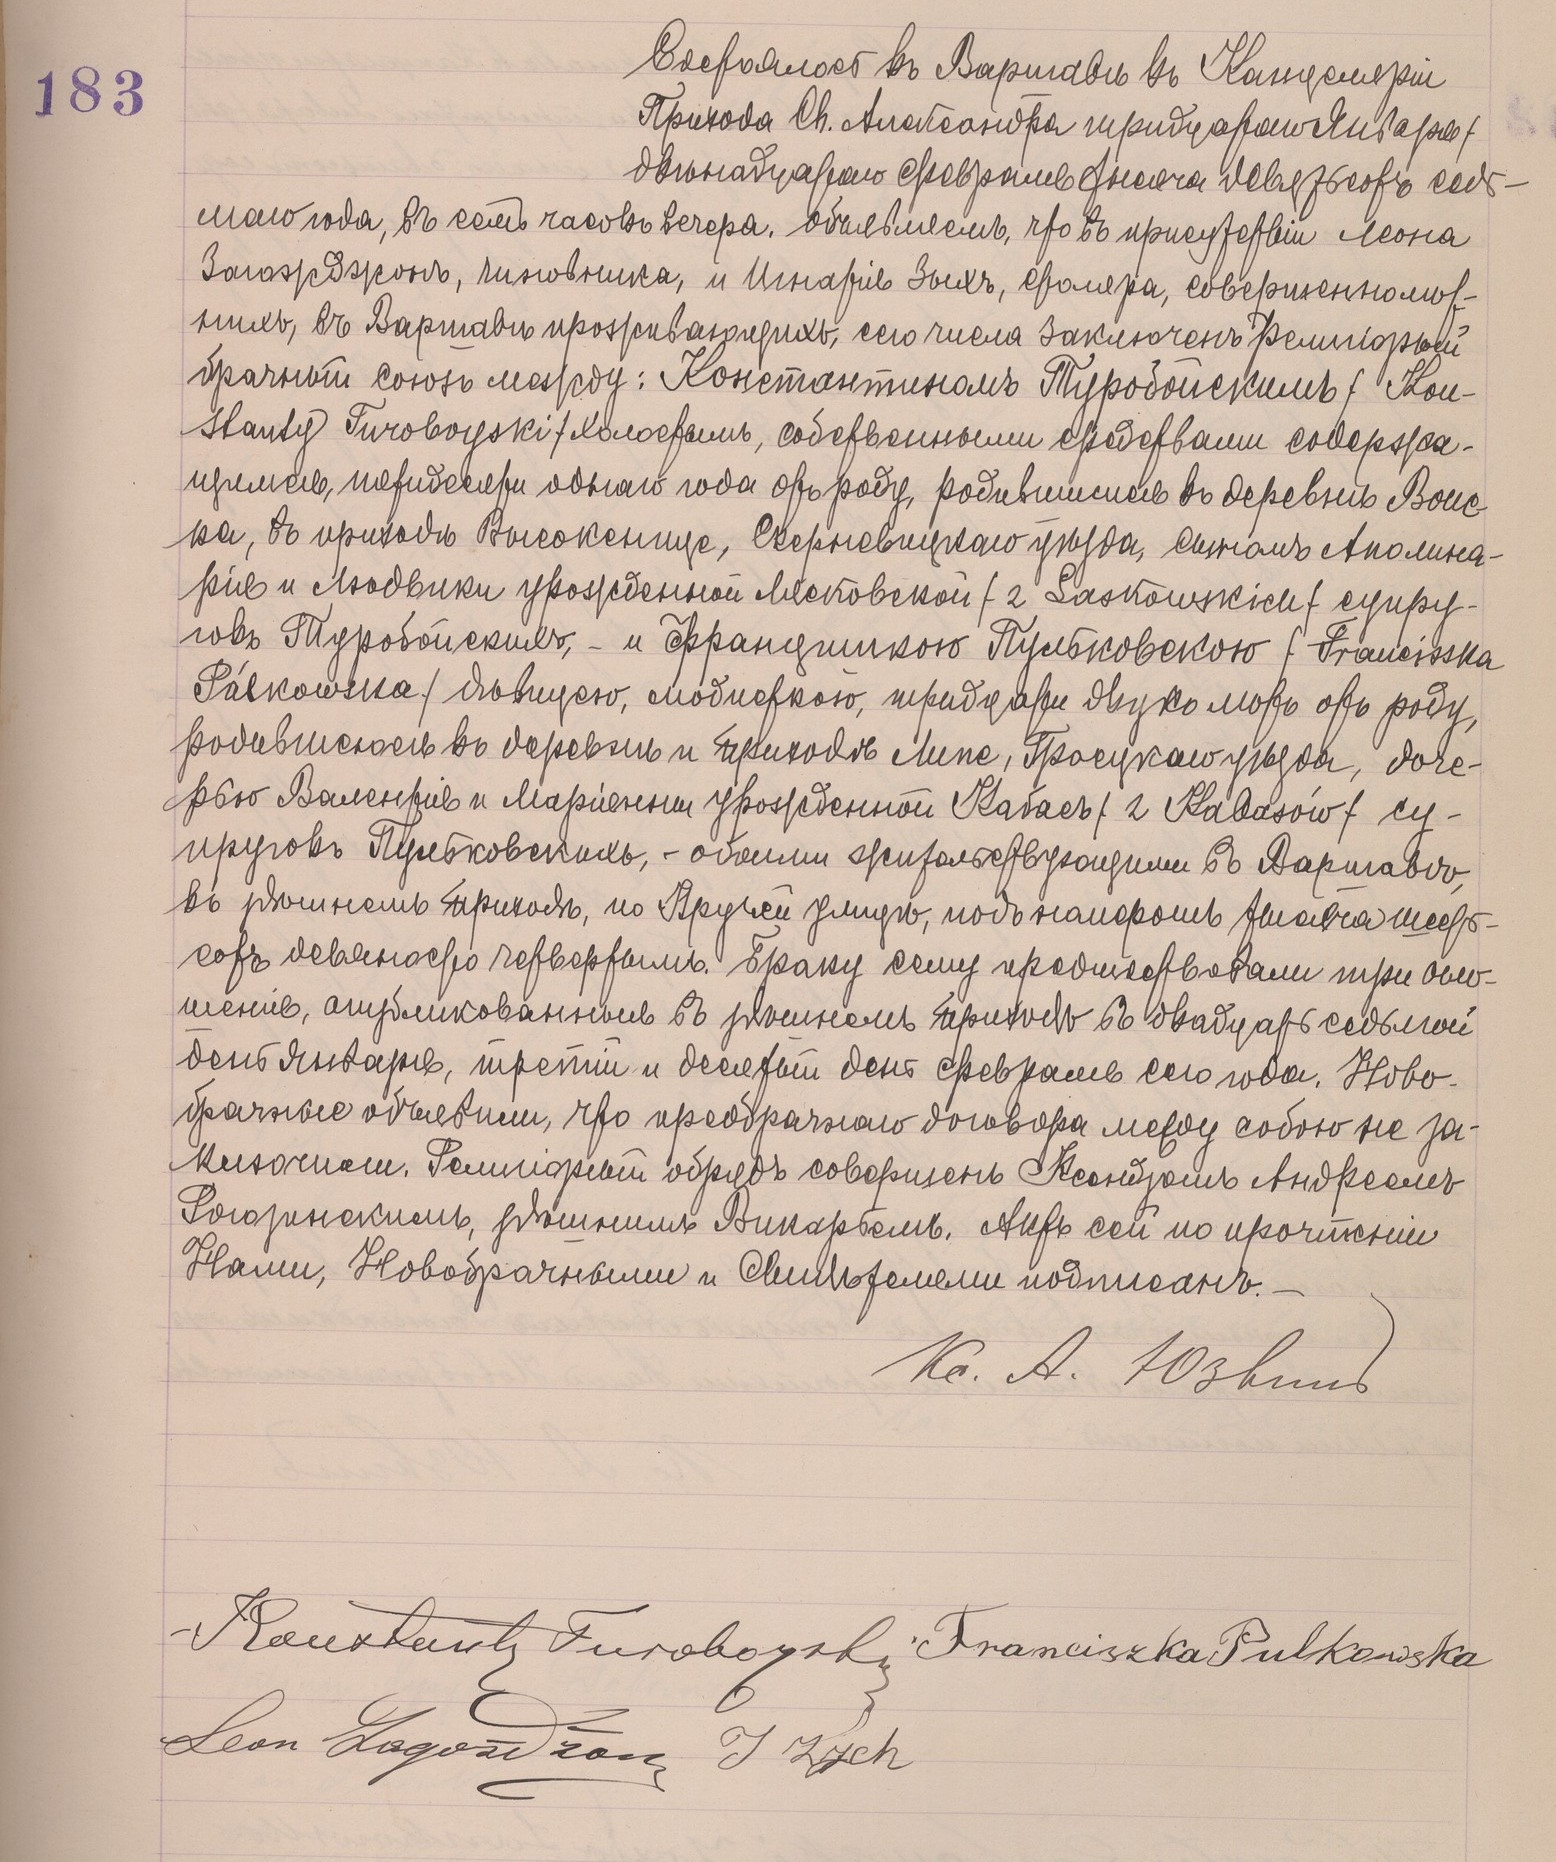 183
Состоялось въ Варшавѣ въ Канцеляріи
Прихода Св. Александра тридцатаго Января /
двѣнадцатаго Февраля / тысяча девятьсотъ седь-
маго года, въ семь часовъ вечера. Объявляемъ, что въ присутствіи Леона
Загаждżонъ, чиновника, и Игнатія Зыхъ, столяра, совершеннолѣт-
нихъ, въ Варшавѣ проживающихъ, сего числа заключенъ религіозный
брачный союзъ между: Константиномъ Туробойскимъ / Kon-
stanty Turoboyski / холостымъ, собственными средствами содержа-
щимся, пятидесяти однаго года отъ роду, родившимся въ деревнѣ Воис-
ка, въ приходѣ Высокеницe, Скерневицкаго уѣзда, сыномъ Аполина-
рія и Людвики урожденной Лясковской / z Laskowskich / супру-
говъ Туробойскихъ, - и Францишкою Пульковскою / Franciszka
Pulkowska / дѣвицею, модисткою, тридцати двухъ лѣтъ отъ роду,
родившеюся въ деревнѣ и приходѣ Липе, Гроецкаго уѣзда, доче-
рью Валентія и Маріанны урожденной Кабасъ / z Kabasów / су-
пруговъ Пульковскихъ, - обоими жительствующими въ Варшавѣ,
въ здѣшнемъ приходѣ, по Кручей улицѣ, подъ номеромъ тысяча шесть-
сотъ девяносто четвертымъ. Браку сему предшествовали три огла-
шенія, опубликованныя въ здѣшнемъ приходѣ въ двадцать седьмой
день Января, третій и десятый день Февраля сего года. Ново-
брачные объявили, что предбрачнаго договора между собою не за-
ключили. Религіозный обрядъ совершенъ Ксендзомъ Андреемъ
Рогозинскимъ, здѣшнимъ Викарьемъ. Актъ сей по прочтеніи
Нами, Новобрачными и Свидѣтелями подписанъ. —
Кс. А.
Konstanty Turoboyski Franciszka Pulkowska
Leon Zagożdżon J Zych